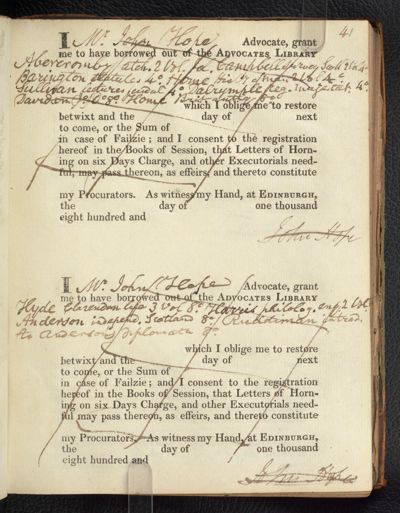 41
I Mr John Hope Advocate, grant
me to have borrowed out of the ADVOCATES LIBRARY
Abercromby 2 Vol. fo. Campbell 4o
Barington statutes 4o Home 2 Vol 4o
Sullivan lectures feudal 4o Dalrymple 4o
Davidson 8o Home Brit. Antiq. 8o
which I oblige me to restore
betwixt and the day of next
to come, or the Sum of
in case of Failzie; and I consent to the registration
hereof in the Books of Session, that Letters of Horn-
ing on six Days Charge, and other Executorials need-
ful, may pass thereon, as effeirs, and thereto constitute
my Procurators. As witness my Hand, at EDINBURGH,
the day of one thousand
eight hundred and
John Hope
I Mr John Hope Advocate, grant
me to have borrowed out of the ADVOCATES LIBRARY
Hyde Clarendon life 3 Vol 8o Harris philolog. enq. 2 Vol.
Anderson independ. Scotland 8o Ruddiman introd.
to Anderson's diplomata 8o
which I oblige me to restore
betwixt and the day of next
to come, or the Sum of
in case of Failzie; and I consent to the registration
hereof in the Books of Session, that Letters of Horn-
ing on six Days Charge, and other Executorials need-
ful may pass thereon, as effeirs, and thereto constitute
my Procurators. As witness my Hand, at EDINBURGH,
the day of one thousand
eight hundred and
John Hope